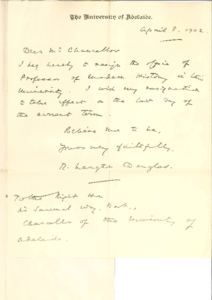 The University of Adelaide.
April 8. 1902
Dear Mr Chancellor
I beg hereby to resign the office of
Professor of Modern History in the
University I wish my resignation
to take effect on the last day of
the current term.
Believe me to be,
Yours very faithfully,
R. Langton Douglas.
To the Right Hon
Sir Samuel Way, Bart.,
Chancellor of the University of
Adelaide.